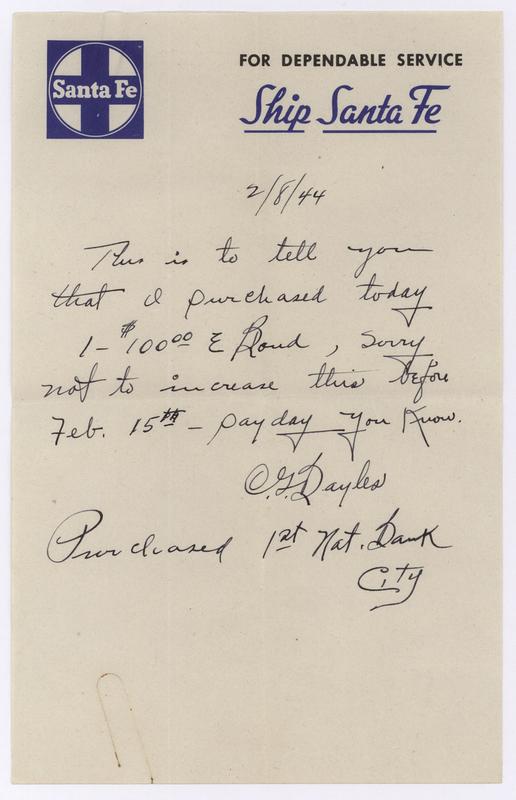 Santa Fe
FOR DEPENDABLE SERVICE
Ship Santa Fe
2/8/44
This is to tell you
that I purchased today
1- $100.00 E Bond, sorry
not to increase this before
Feb. 15th - payday you know.
C.G. Dayles
Purchased 1st Nat. Bank
City